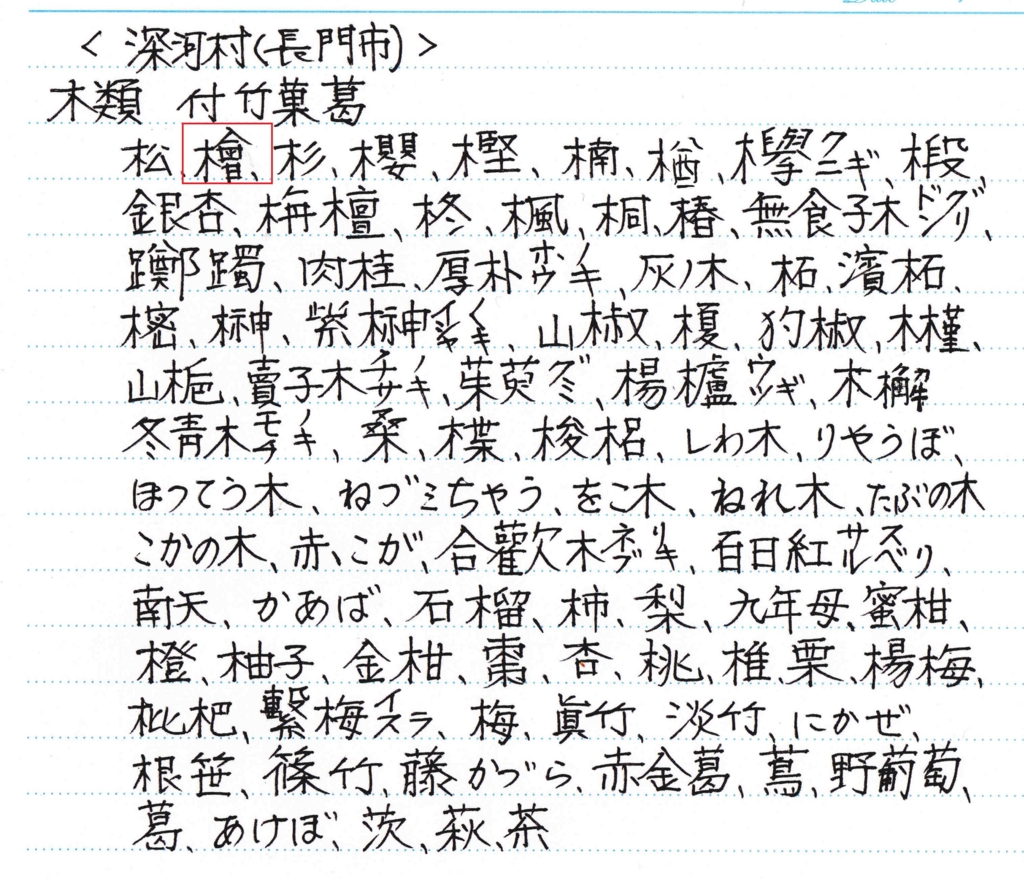 <深河村(長門市)>
木類 付竹菓葛
松、檜、杉、櫻、樫、楠、楢、欅クニギ、椴、
銀杏、栴檀、柊、楓、桐、椿、無食子木ドングリ、
躑躅、肉桂、厚朴ホウノキ、灰ノ木、柘、濱柘、
樒、榊、柴榊イヌサカキ、山椒、榎、犳椒、木槿、
山梔、賣子木チサノキ、茱萸グミ、楊櫨ウツギ、木檞
冬青木モチノキ、桑、楪、梭梠、しわ木、りやうぼ、
ほってう木、ねづミちやう、をこ木、ねれ木、たぶの木
こかの木、赤こが、合歡木ネブリキ、百日紅サルスベリ、
南天、かあば、石榴、柿、梨、九年母、蜜柑、
橙、柚子、金柑、棗、杏、桃、椎、栗、楊梅、
枇杷、繋梅イスラ、梅、眞竹、淡竹、にかぜ、
根笹、篠竹、藤かづら、赤金葛、蔦、野葡萄、
葛、あけぼ、茨、萩、茶